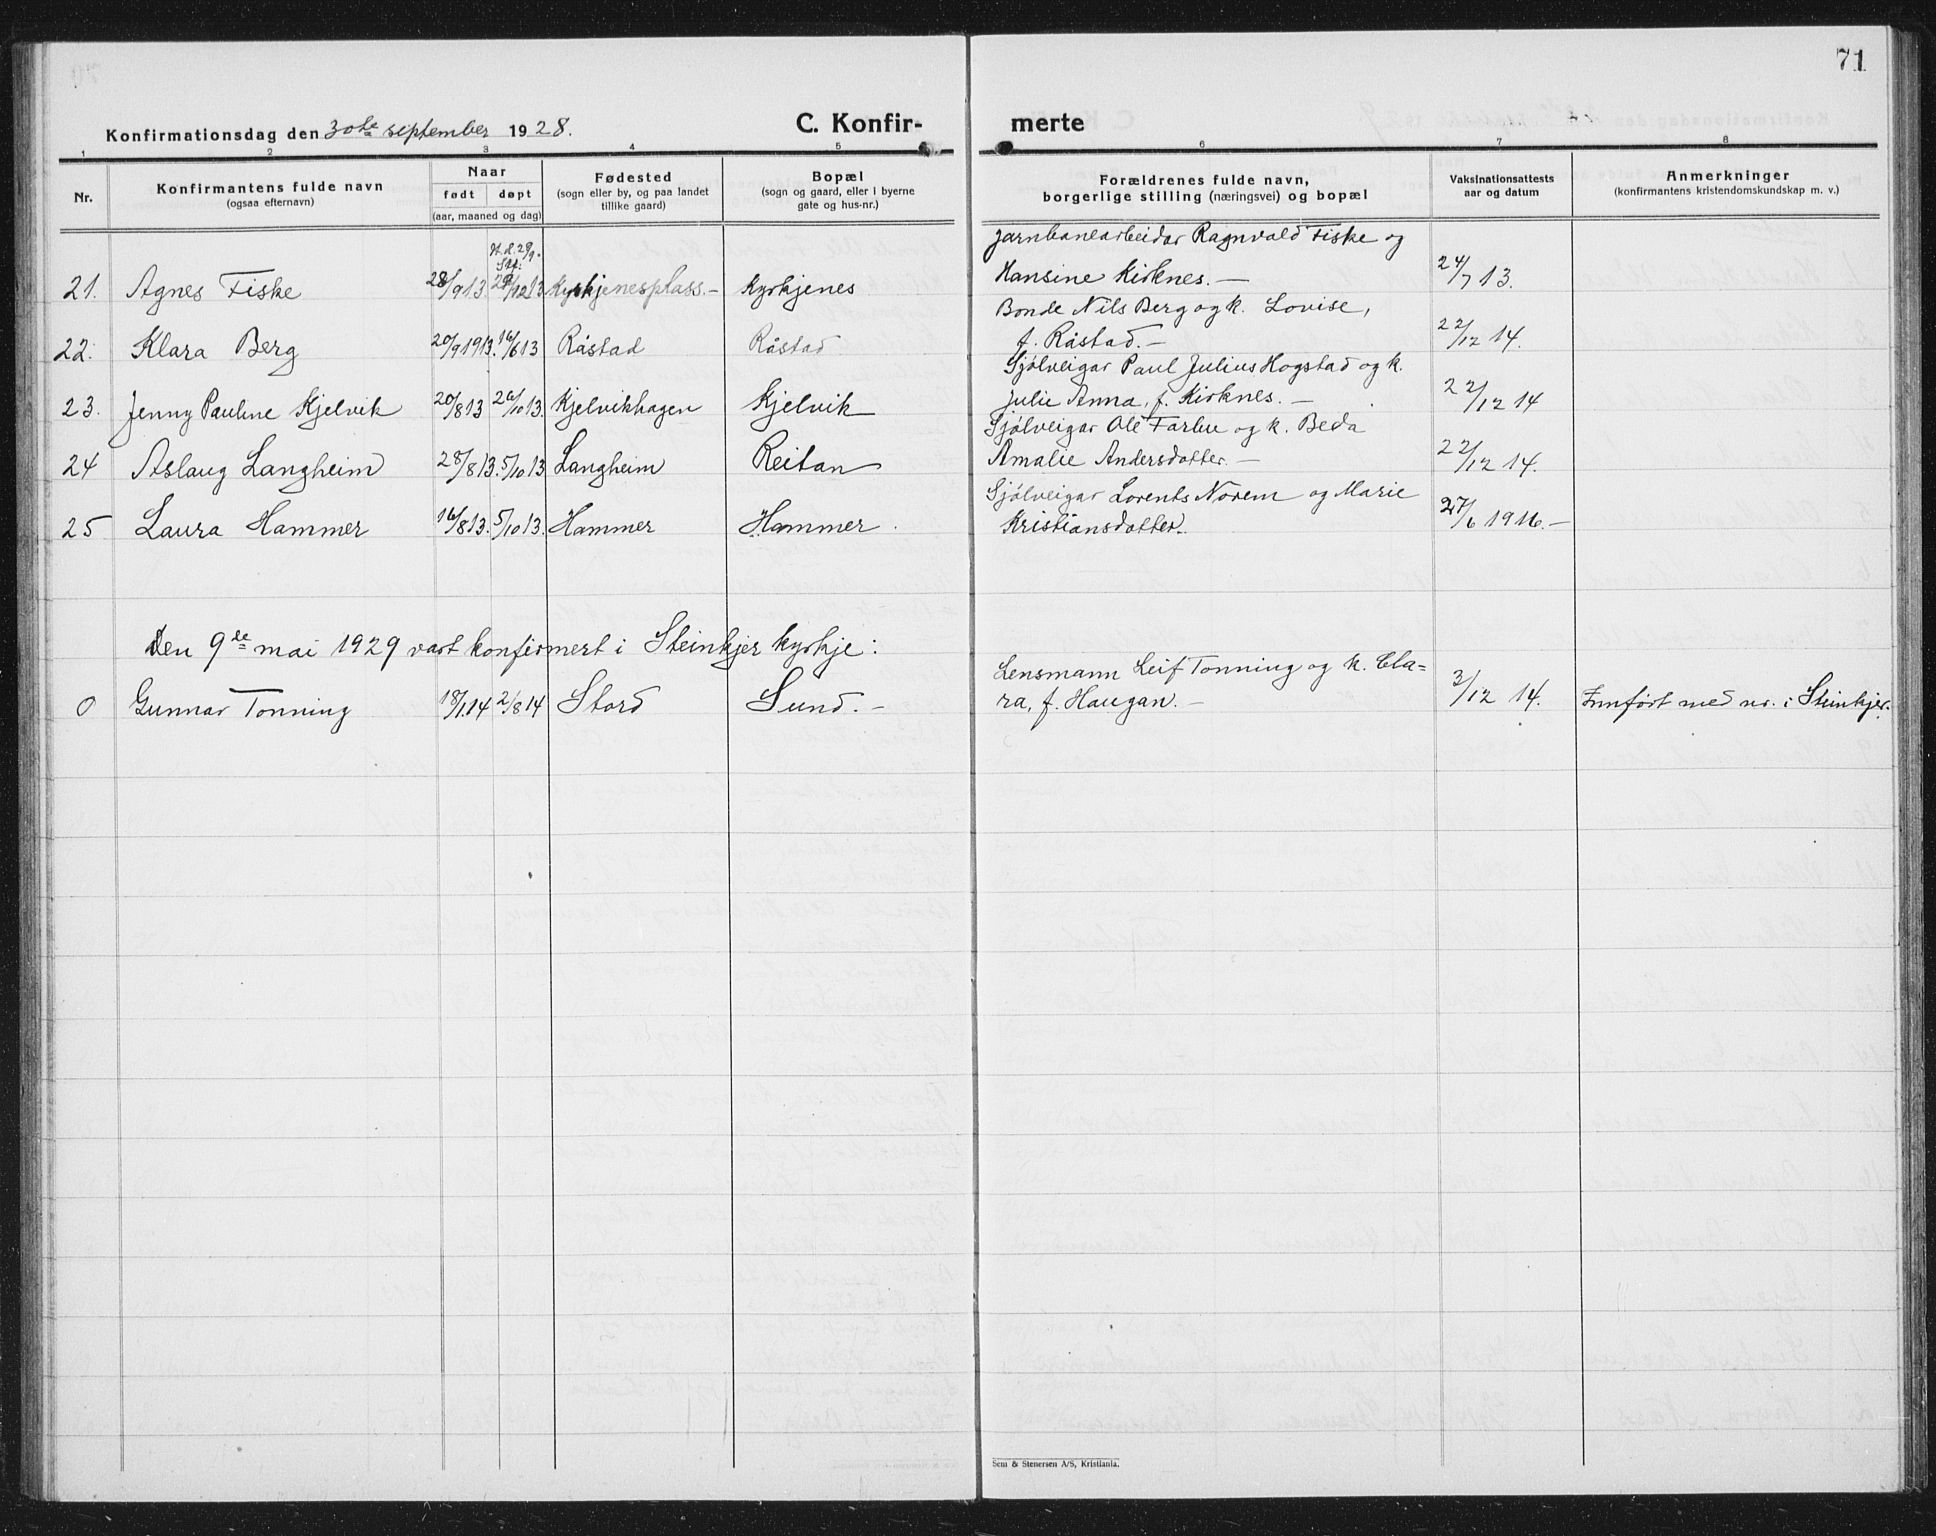 71
Konfirmationsdag den 30te september 1928.
C. Konfir-
merte
1 2 3 4 5 6 7 8
Nr.
Konfirmantens fulde navn
(ogsaa efternavn)
Naar
født døpt
(aar, maaned og dag)
Fødested
(sogn eller by, og paa landet
tillike gaard)
Bopæl
(sogn og gaard, eller i byerne
gate og hus-nr.)
Forældrenes fulde navn,
borgerlige stilling (næringsvei) og bopæl
Vaksinationsattests
aar og datum
Anmerkninger
(konfirmantens kristendomskundskap m. v.)
H.d. 29/9.
Stf:
Jarnbanearbeidar Ragnvald Fiske og
21. Agnes Fiske 28/9 13 28/12 13 Kyrkjenesplass.- Kyrkjenes Hansine Kirknes. — 24/7 13.
Bonde Nils Berg og k. Lovise,
22. Klara Berg 20/9 1913. 16/6 13 Råstad Råstad f. Råstad. — 22/12 14.
Sjølveigar Paul Julius Hogstad og k.
23. Jenny Pauline Kjelvik 20/8 13 26/10 13. Kjelvikhagen Kjelvik Julie Anna, f. Kirknes. — 22/12 14
Sjølveigar Ole Farbu og k. Beda
24 Aslaug Langheim 28/8 13. 5/10 13 Langheim Reitan Amalie Andersdotter. — 22/12 14.
Sjølveigar Lorents Norem og Marie
25 Laura Hammer 16/8 13. 5/10 13. Hammer Hammer. Kristiansdotter. 27/6 1916. —
Den 9de mai 1929 vart konfirmert i Steinkjer kyrkje:
Lensmann Leif Tonning og k. Cla=
0 Gunnar Tonning 18/1 14 2/8 14 Stord Sund. — ra, f. Haugan. — 3/12 14. Innført med nr. i Steinkjer.
Sem & Stenersen A/S, Kristiania.